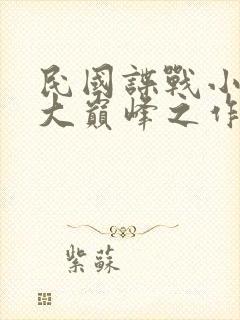 民國諜戰小
大巔峰之作
紫蘇